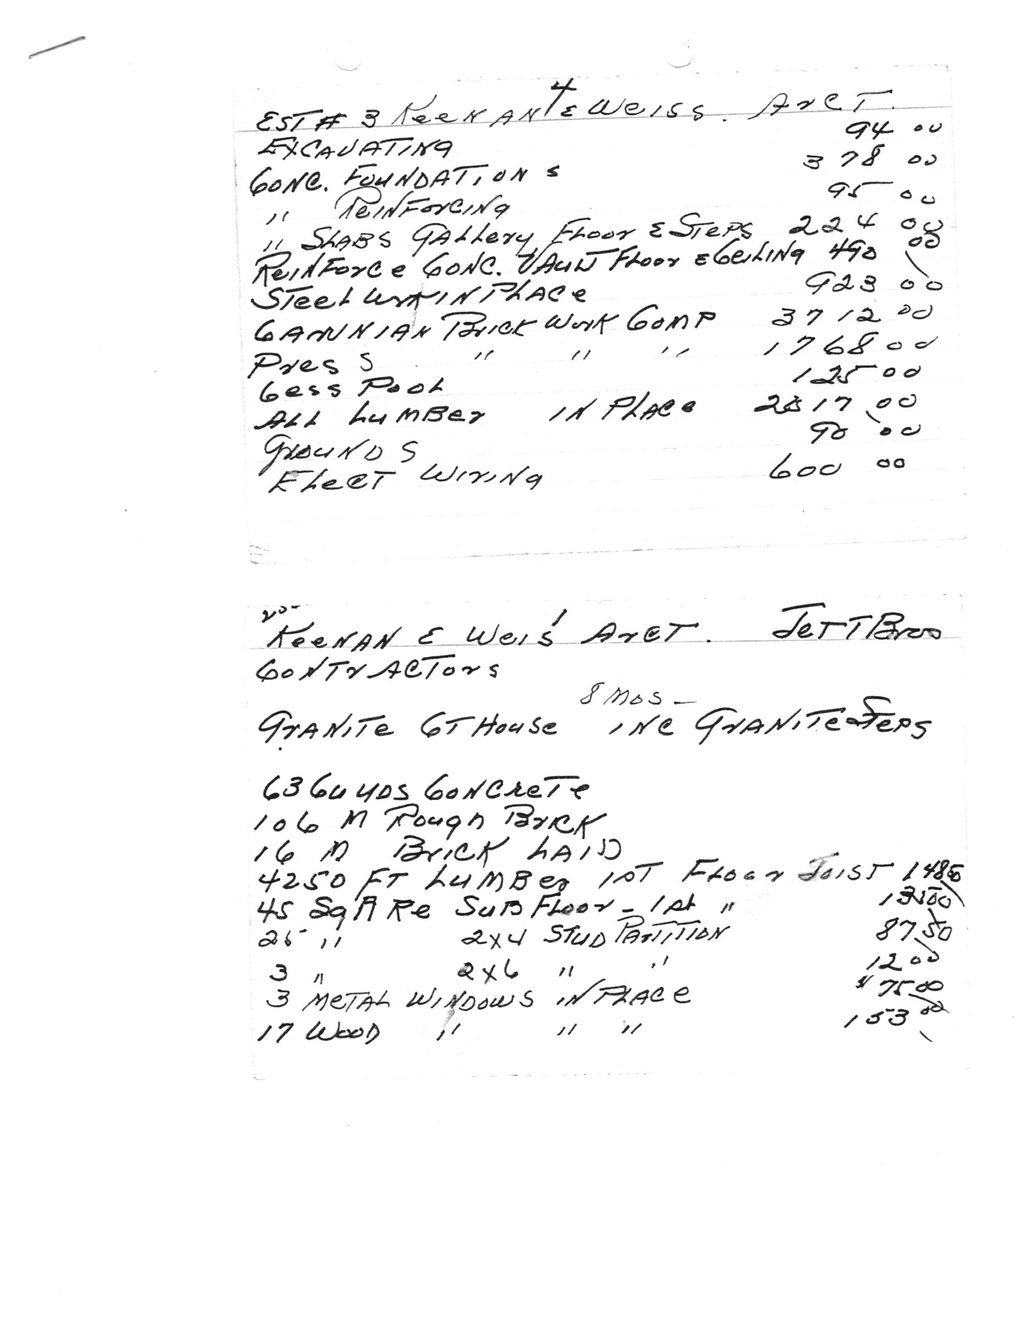 4
EST # 3 KEENAN & WEISS. ArCT.
EXCAVATING 94 00
CONC. FOUNDATIONS 378 00
" REINFORCING 95 00
" SLABS GALLERY FLOOR & STEPS 224 00
REINFORCE CONC. VAULT FLOOR & CEILING 490 00
STEEL WRK IN PLACE 923 00
BRICK WORK COMP 3712 00
PRESS " " " 1768 00
CESS POOL 125 00
ALL LUMBER IN PLACE 00
GROUNDS 90 00
ELECT WIRING 600 00
1
KEENAN & WEIS ArCT. JETT Bros
CONTRACTORS
8 MOS —
GRANITE CT HOUSE INC GRANITE STEPS
636 CU YDS CONCRETE
106 M ROUGH BRICK
16 M BRICK LAID
4250 FT LUMBER 1ST FLOOR JOIST
45 SQARE SUB FLOOR - 1st " 13500
25 " 2x4 STUD PARTITION 8750
3 " 2x6 " " 1200
3 METAL WINDOWS IN PLACE $ 7500
17 WOOD " " " 153 00